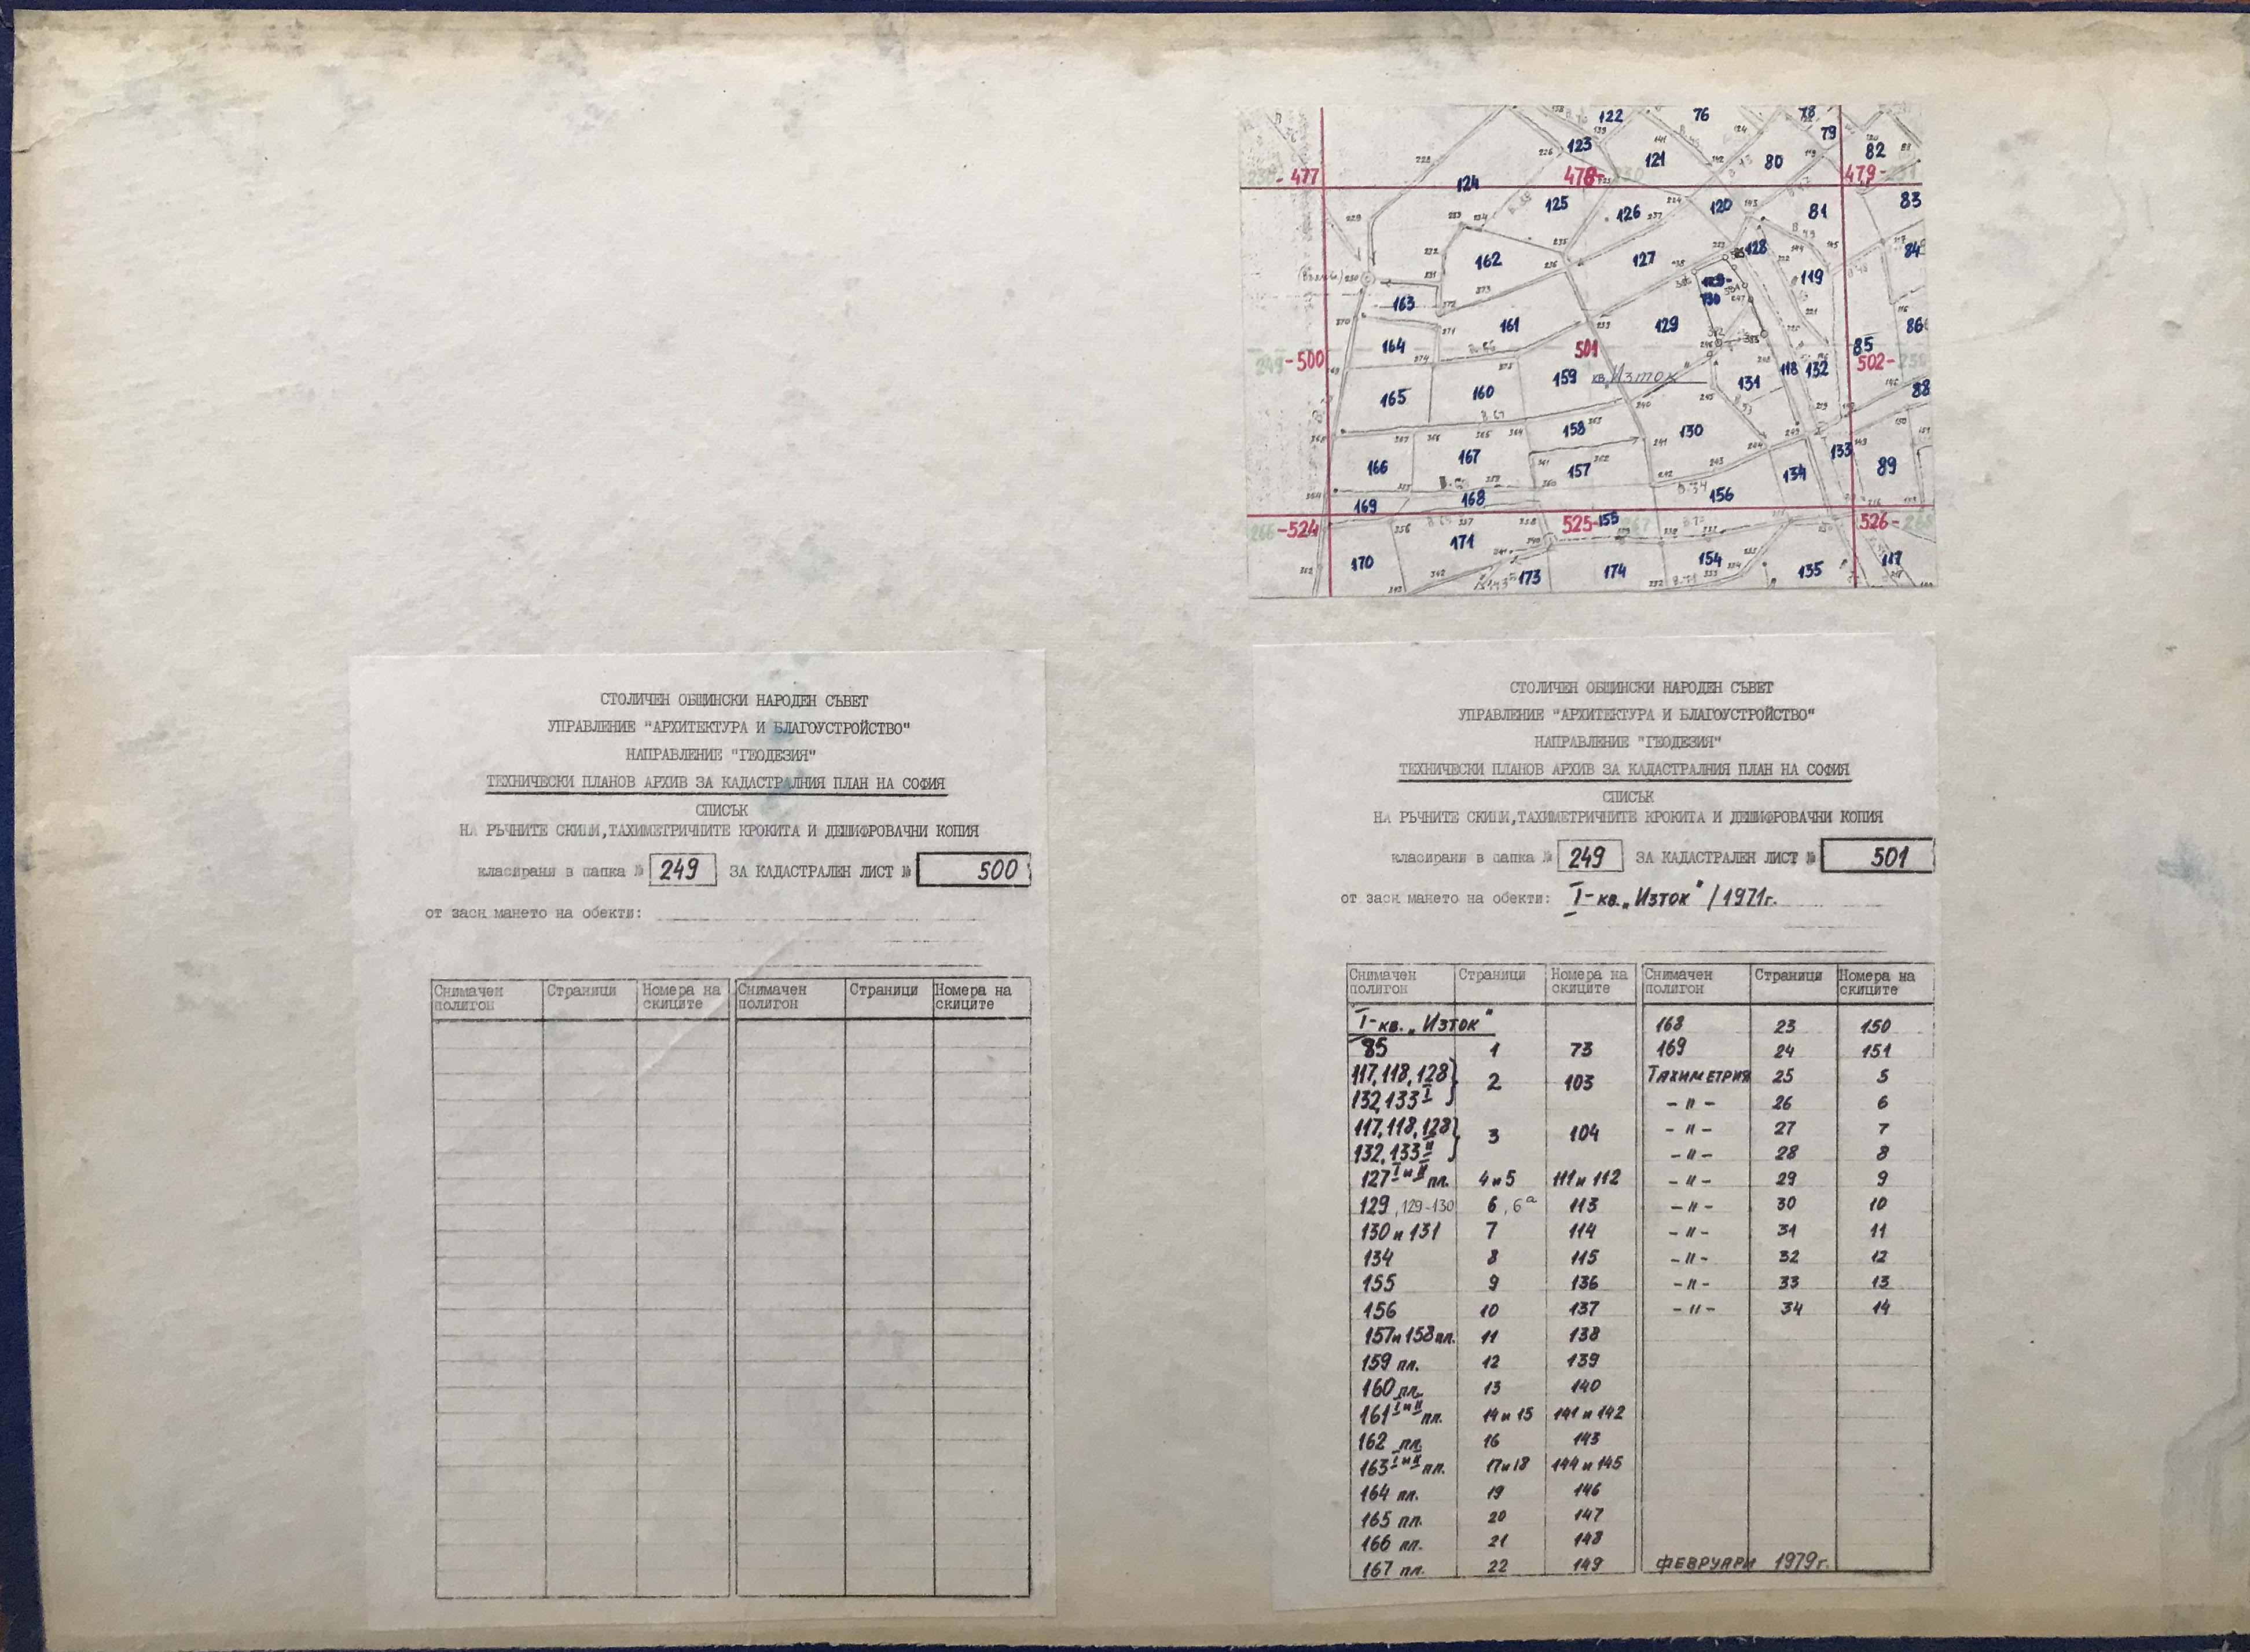 122
76
78
79
123
121
80
82
-477
478-
479-
124
125
126
120
81
83
162
127
128
84
119
163
129-
130
161
129
86
164
501
85
-500
502-
159
кв. Изток
118
132
131
88
165
160
158
130
166
167
157
133
134
89
169
168
156
-524
525-
155
526-
171
170
173
174
154
135
117
СТОЛИЧЕН ОБЩИНСКИ НАРОДЕН СЪВЕТ
УПРАВЛЕНИЕ "АРХИТЕКТУРА И БЛАГОУСТРОЙСТВО"
НАПРАВЛЕНИЕ "ГЕОДЕЗИЯ"
ТЕХНИЧЕСКИ ПЛАНОВ АРХИВ ЗА КАДАСТРАЛНИЯ ПЛАН НА СОФИЯ
СПИСЪК
НА РЪЧНИТЕ СКИЦИ, ТАХИМЕТРИЧНИТЕ КРОКИТА И ДЕШИФРОВАЧНИ КОПИЯ
класирани в папка № 249 ЗА КАДАСТРАЛЕН ЛИСТ № 500
от засн мането на обекти:
Снимачен полигон Страници Номера на скиците Снимачен полигон Страници Номера на скиците
СТОЛИЧЕН ОБЩИНСКИ НАРОДЕН СЪВЕТ
УПРАВЛЕНИЕ "АРХИТЕКТУРА И БЛАГОУСТРОЙСТВО"
НАПРАВЛЕНИЕ "ГЕОДЕЗИЯ"
ТЕХНИЧЕСКИ ПЛАНОВ АРХИВ ЗА КАДАСТРАЛНИЯ ПЛАН НА СОФИЯ
СПИСЪК
НА РЪЧНИТЕ СКИЦИ, ТАХИМЕТРИЧНИТЕ КРОКИТА И ДЕШИФРОВАЧНИ КОПИЯ
класирани в папка № 249 ЗА КАДАСТРАЛЕН ЛИСТ № 501
от засн мането на обекти: I-кв. „Изток" / 1971г.
Снимачен полигон Страници Номера на скиците Снимачен полигон Страници Номера на скиците
I-кв. „Изток" 168 23 150
85 1 73 169 24 151
117, 118, 128 } 2 103 Тахиметрия 25 5
132, 133 I - " - 26 6
117, 118, 128 } 3 104 - " - 27 7
132, 133 II - " - 28 8
127 I и II пл. 4 и 5 111 и 112 - " - 29 9
129, 129-130 6, 6а 113 - " - 30 10
130 и 131 7 114 - " - 31 11
134 8 115 - " - 32 12
155 9 136 - " - 33 13
156 10 137 - " - 34 14
157 и 158 пл. 11 138
159 пл. 12 139
160 пл. 13 140
161 I и II пл. 14 и 15 141 и 142
162 пл. 16 143
163 I и II пл. 17 и 18 144 и 145
164 пл. 19 146
165 пл. 20 147
166 пл. 21 148
167 пл. 22 149 ФЕВРУАРИ 1979г.